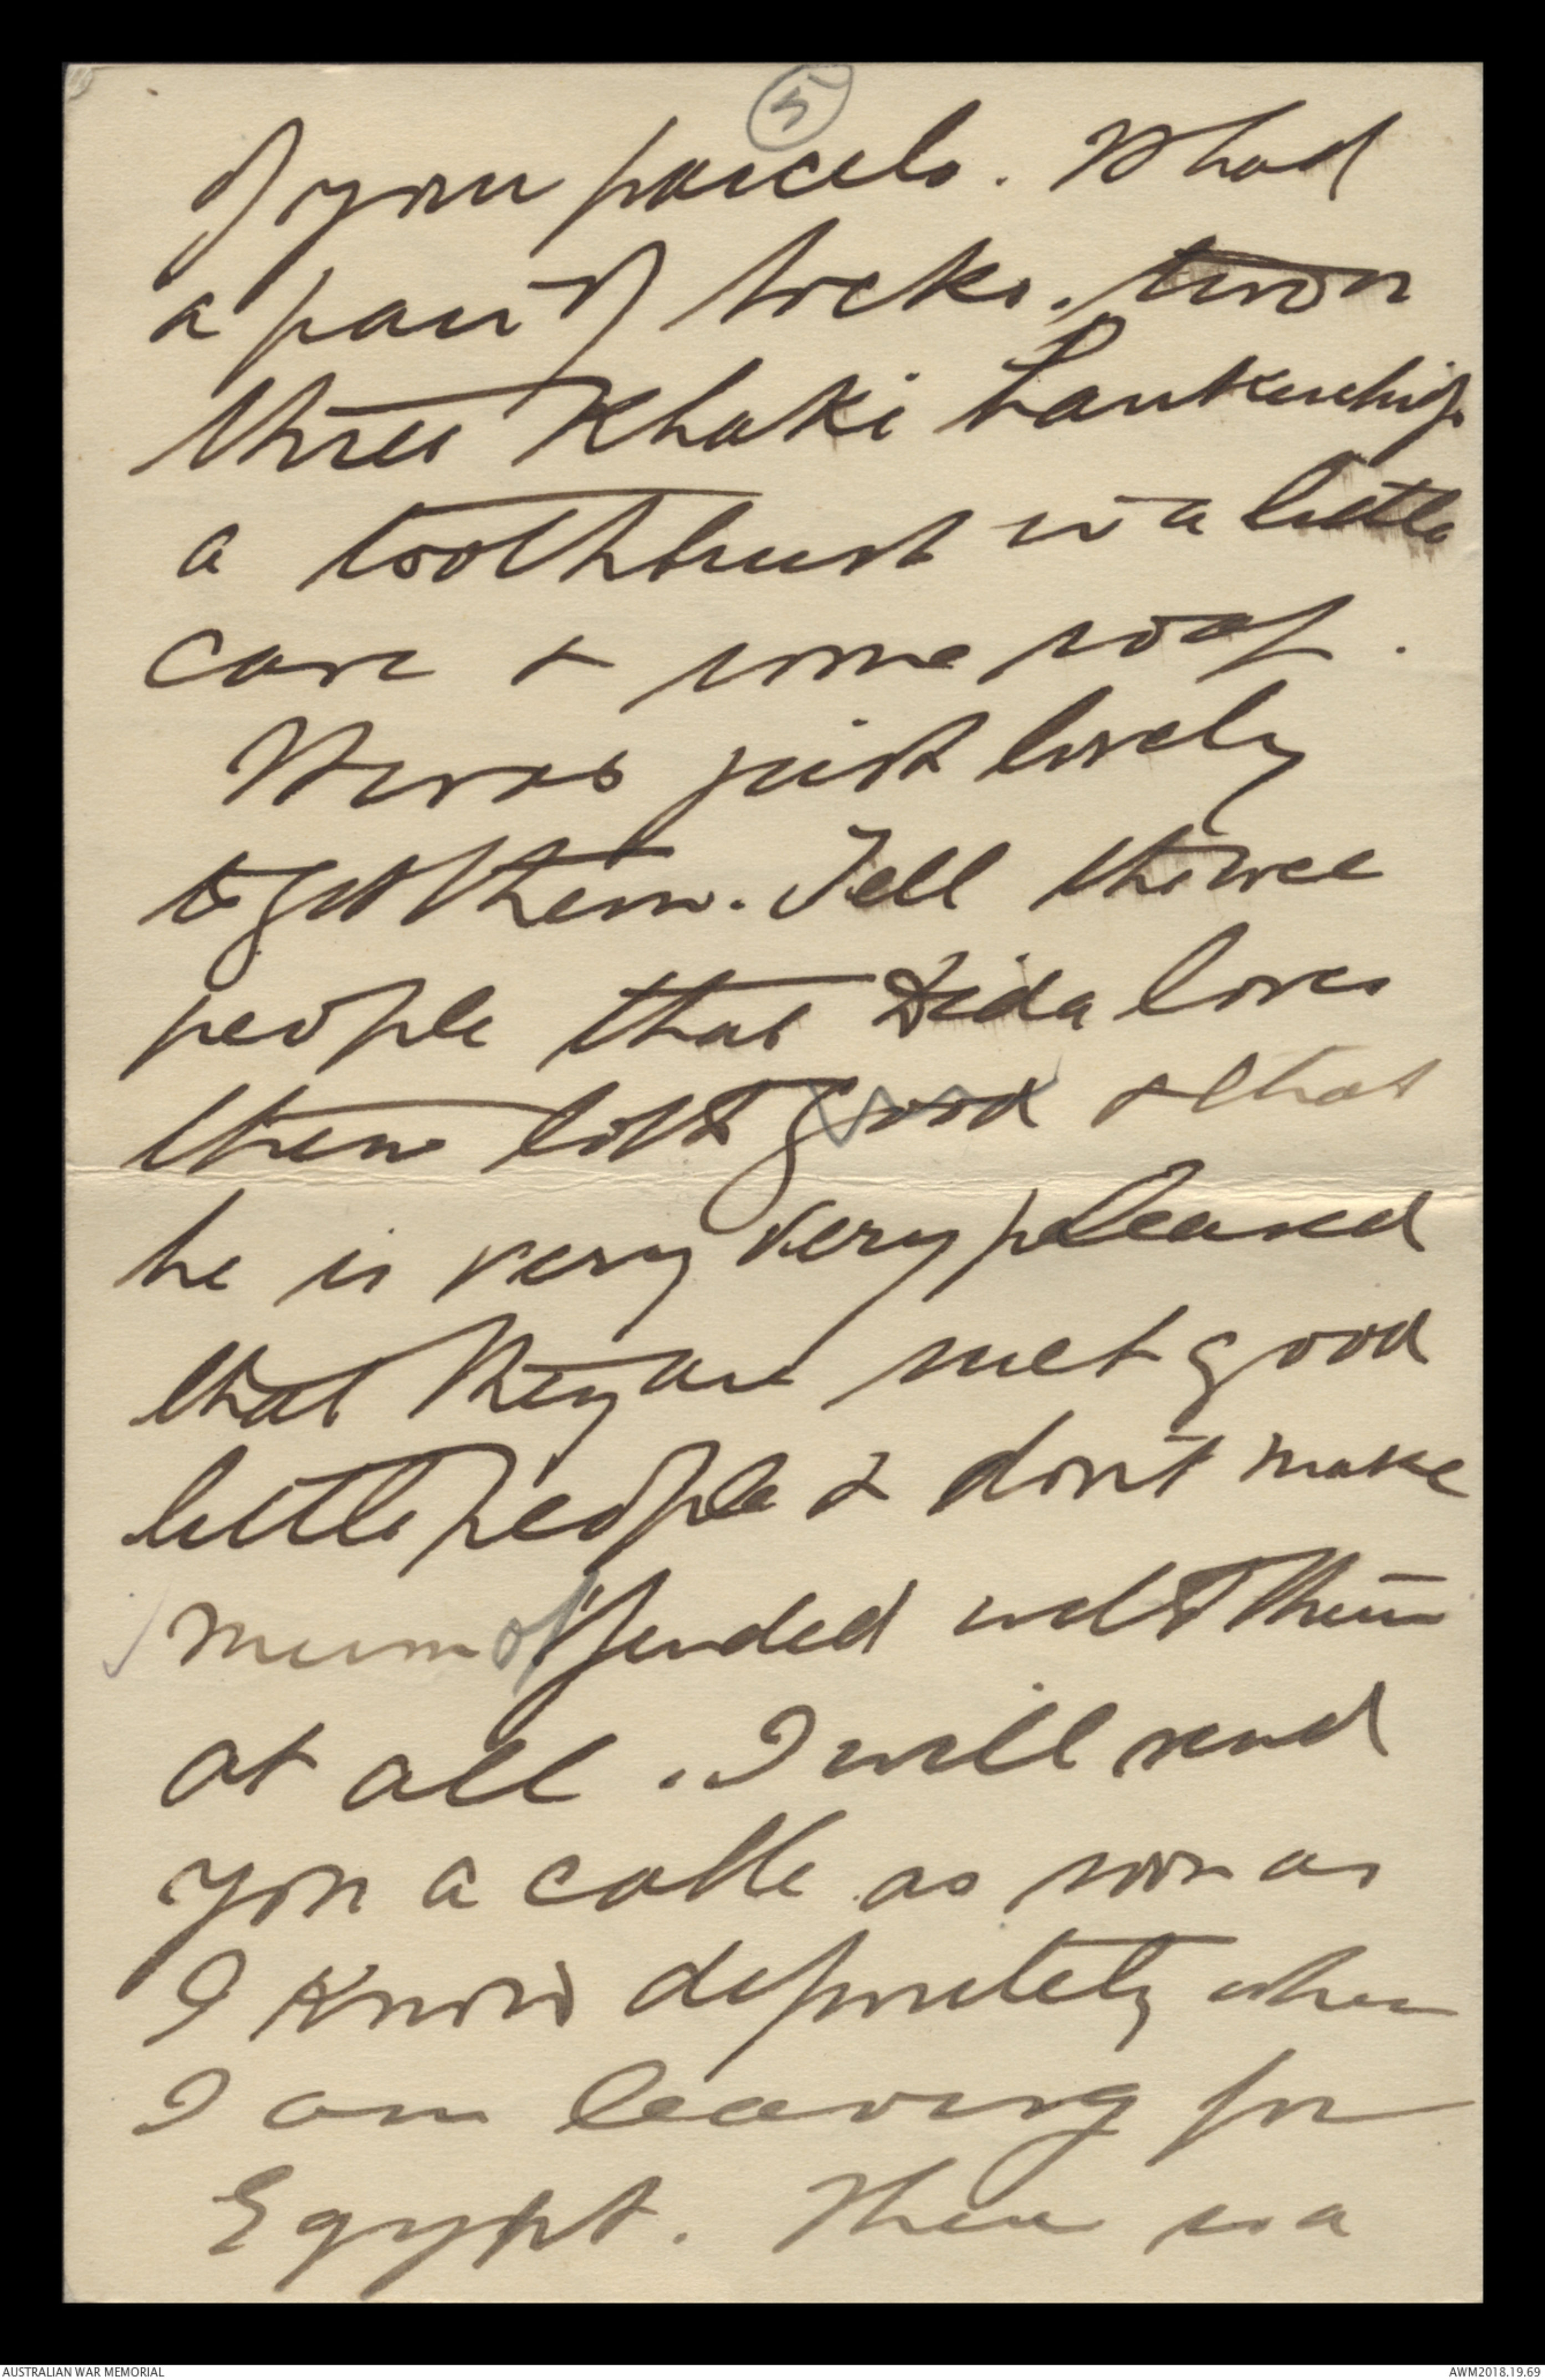 5
of your parcels. It had
a pair of socks. two or
three Khaki hankerchifs
a toothbrush in a little
case & some soap.
It was just lovely
to get them. Tell the wee
people that Dida loves
them lots good & that
he is very very pleased
that they are such good
little people & don't make
mum offended with them
at all. I will send
you a cable as soon as
I know definitely when
I am leaving for
Egypt. There is a
AUSTRALIAN WAR MEMORIAL
AWM2018.19.69